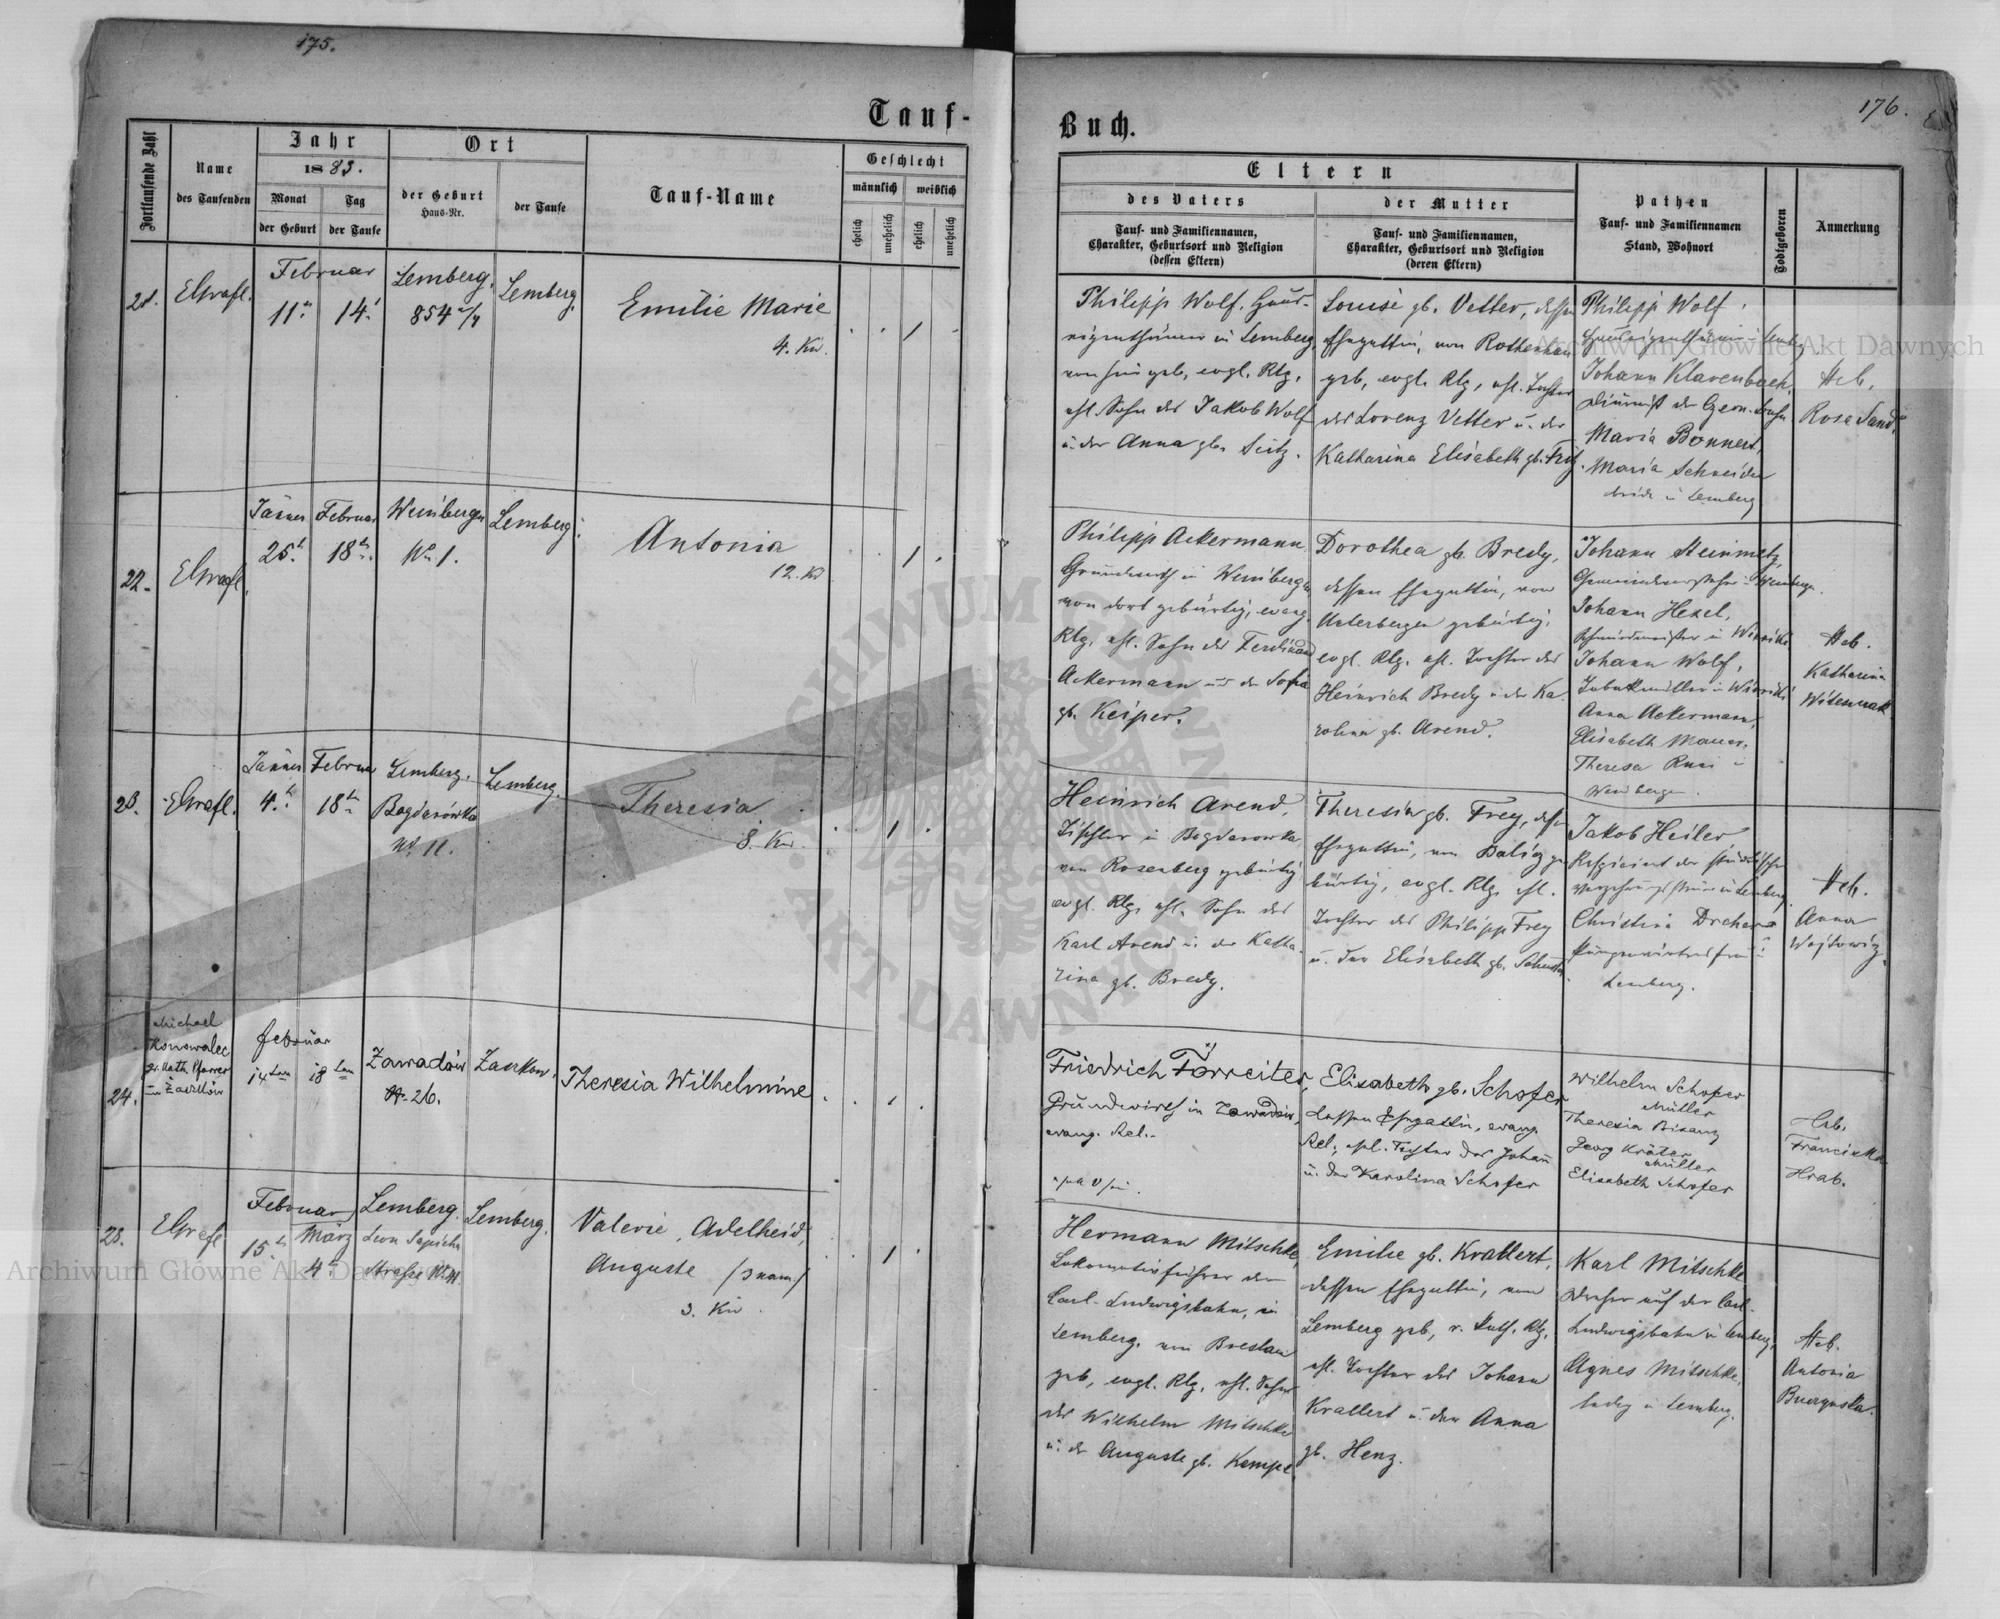 175.
Tauf-
Fortlaufende Zahl
Name
des Taufenden
Jahr
1883.
Monat
Tag
der Geburt
der Taufe
Ort
der Geburt
Haus-Nr.
der Taufe
Tauf-Name
Geschlecht
männlich
weiblich
ehelich
unehelich
ehelich
unehelich
21.
EGrafl.
Februar
11.
14.
Lemberg,
854 2/4
Lemberg.
Emilie Marie
4. Kd.
22.
EGrafl.
Jänner
Februar
25.
18.
Weinbergen
No. 1.
Lemberg.
Antonia
12. Kd
23.
EGrafl.
Jänner
Februar
4.
18
Lemberg.
Bogdanówka
No. 11.
Lemberg.
Theresia
8. Kd.
24.
Michael
Konowalec
gr. kath. Pfarrer
in Zaszków
Februar
14ten
18ten
Zawadów
N. 26.
Zaszków.
Theresia Wilhelmine
25.
EGrafl
Februar
März
15.
4
Lemberg.
Leon Sapieha
Strasse
Lemberg.
Valerie, Adelheid,
Auguste /3 nam./
3. Kd.
176.
Buch.
Eltern
des Vaters
Tauf- und Familiennamen,
Charakter, Geburtsort und Religion
(dessen Eltern)
der Mutter
Tauf- und Familiennamen,
Charakter, Geburtsort und Religion
(deren Eltern)
Pathen
Tauf- und Familiennamen
Stand, Wohnort
Todtgeboren
Anmerkung
Philipp Wolf. Haus-
eigenthümer in Lemberg,
von hier geb, evgl. Rlg.
ehl. Sohn des Jakob Wolf
u. der Anna gb. Seitz.
Louise gb. Vetter, dessen
Ehegattin, von Rottenhan
geb, evgl. Rlg, ehl. Tochter
des Lorenz Vetter u. der
Katharina Elisabeth gb. Frey.
Philipp Wolf.
Hauseigenthümer in Lemberg
Johann Klarenbach,
Maria Bonnert,
Maria Schneider
beide in Lemberg
Heb.
Rosa Sand.
Philipp Ackermann,
Grundwirth in Weinbergen
von dort gebürtig, evang.
Rlg. ehl. Sohn des Ferdinand
Ackermann und der Sofia
gb. Keiper.
Dorothea gb. Bredy,
dessen Ehegattin, von
Unterbergen gebürtig,
evgl. Rlg. ehl. Tochter des
Heinrich Bredy u. der Ka-
rolina gb. Arend.
Johann Steinmetz,
Gemeindevorsteher in Weinbergen.
Johann Hexel,
Schmiedmeister in Winniki
Johann Wolf,
in Winniki
Anna Ackermann,
Elisabeth Mauer,
Theresa
Weinbergen.
Heb.
Katharina
Heinrich Arend,
Tischler in Bogdanowka
von Rosenberg gebürtig
evgl. Rlg, ehl. Sohn des
Karl Arend u. der Katha-
rina gb. Bredy.
Theresia gb. Frey, dessen
Ehegattin, von Dalig ge-
bürtig, evgl. Rlg. ehl.
Tochter des Philipp Frey
u. der Elisabeth gb. Schuster.
Jakob Heiler
Respicient der städtischen
in Lemberg,
Christina Dreher
Lemberg.
Heb.
Anna
Wojtowicz.
Friedrich Forreiter,
Grundwirth in Zawadów,
evang. Rel.
Elisabeth gb. Schofer
dessen Ehegattin, evang.
Rel., ehl. Tochter des Johann
u. der Karolina Schofer
Wilhelm Schofer
Müller
Theresia Bisanz
Georg Kräter
Müller
Elisabeth Schofer
Heb.
Franciszka
Hrab.
Hermann Mitschke,
Lokomotivführer der
Carl-Ludwigsbahn, in
Lemberg, von Breslau
geb, evgl. Rlg, ehl. Sohn
des Wilhelm Mitschke
u. der Auguste gb. Kempe.
Emilie gb. Krattert,
dessen Ehegattin, von
Lemberg geb, r. kath. Rlg.
ehl. Tochter des Johann
Krattert u. der Anna
gb. Henz.
Karl Mitschke
Dreher auf der Carl-
Ludwigsbahn in Lemberg,
Agnes Mitschke,
ledig in Lemberg.
Heb.
Antonia
Archiwum Główne Akt Dawnych
Archiwum Główne Akt Dawnych
ARCHIWUM GŁÓWNE AKT DAWNYCH